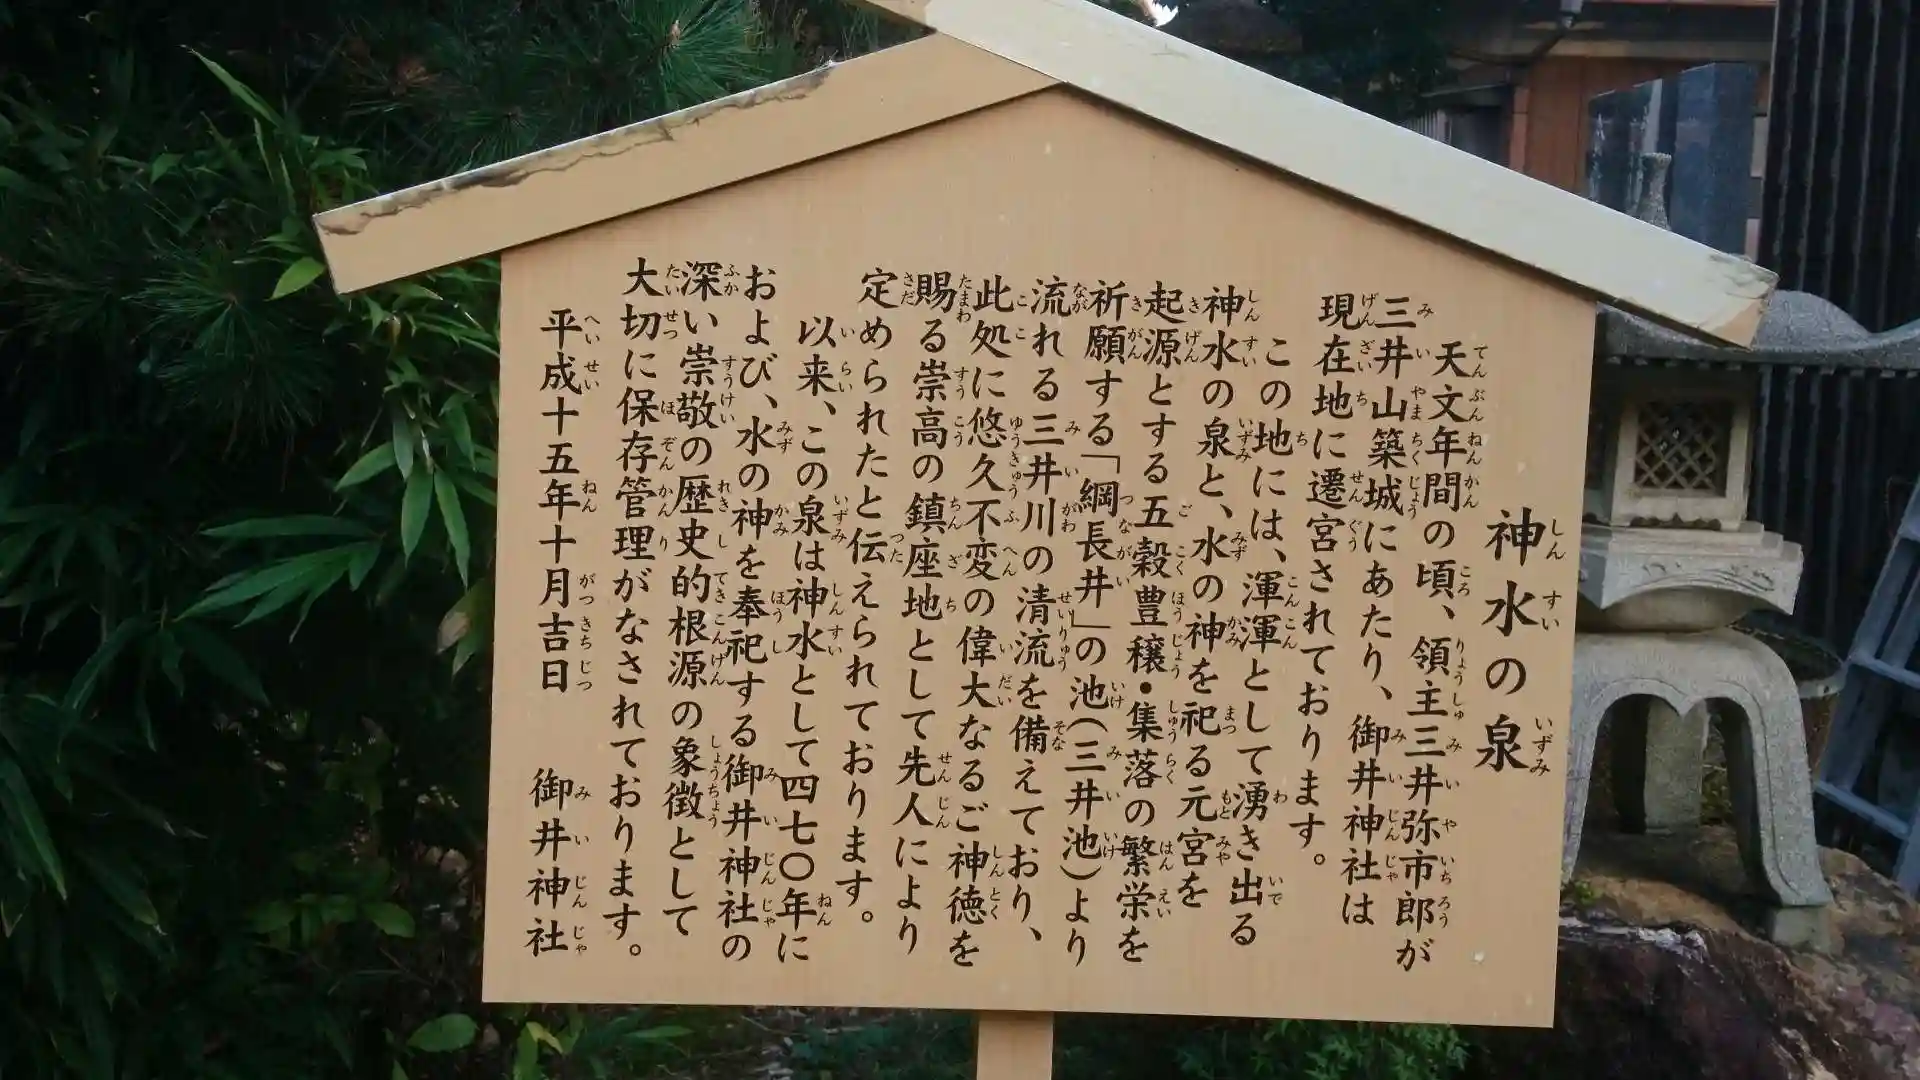 神水の泉
天文年間の頃、領主三井弥市郎が
三井山築城にあたり、御井神社は
現在地に遷宮されております。
この地には、渾渾として湧き出る
神水の泉と、水の神を祀る元宮を
起源とする五穀豊穣・集落の繁栄を
祈願する「綱長井」の池(三井池)より
流れる三井川の清流を備えており、
此処に悠久不変の偉大なるご神徳を
賜る崇高の鎮座地として先人により
定められたと伝えられております。
以来、この泉は神水として四七〇年に
および、水の神を奉祀する御井神社の
深い崇敬の歴史的根源の象徴として
大切に保存管理がなされております。
平成十五年十月吉日 御井神社